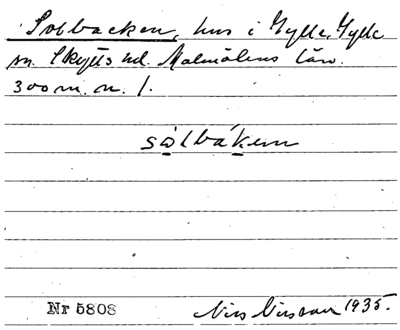 Solbacken, hus i Gylle, Gylle
sn. Skytts hd. Malmöhus län.
300 m. n. l.
sòlbákęn
Nr 5808
Nils Nilsson 1935.